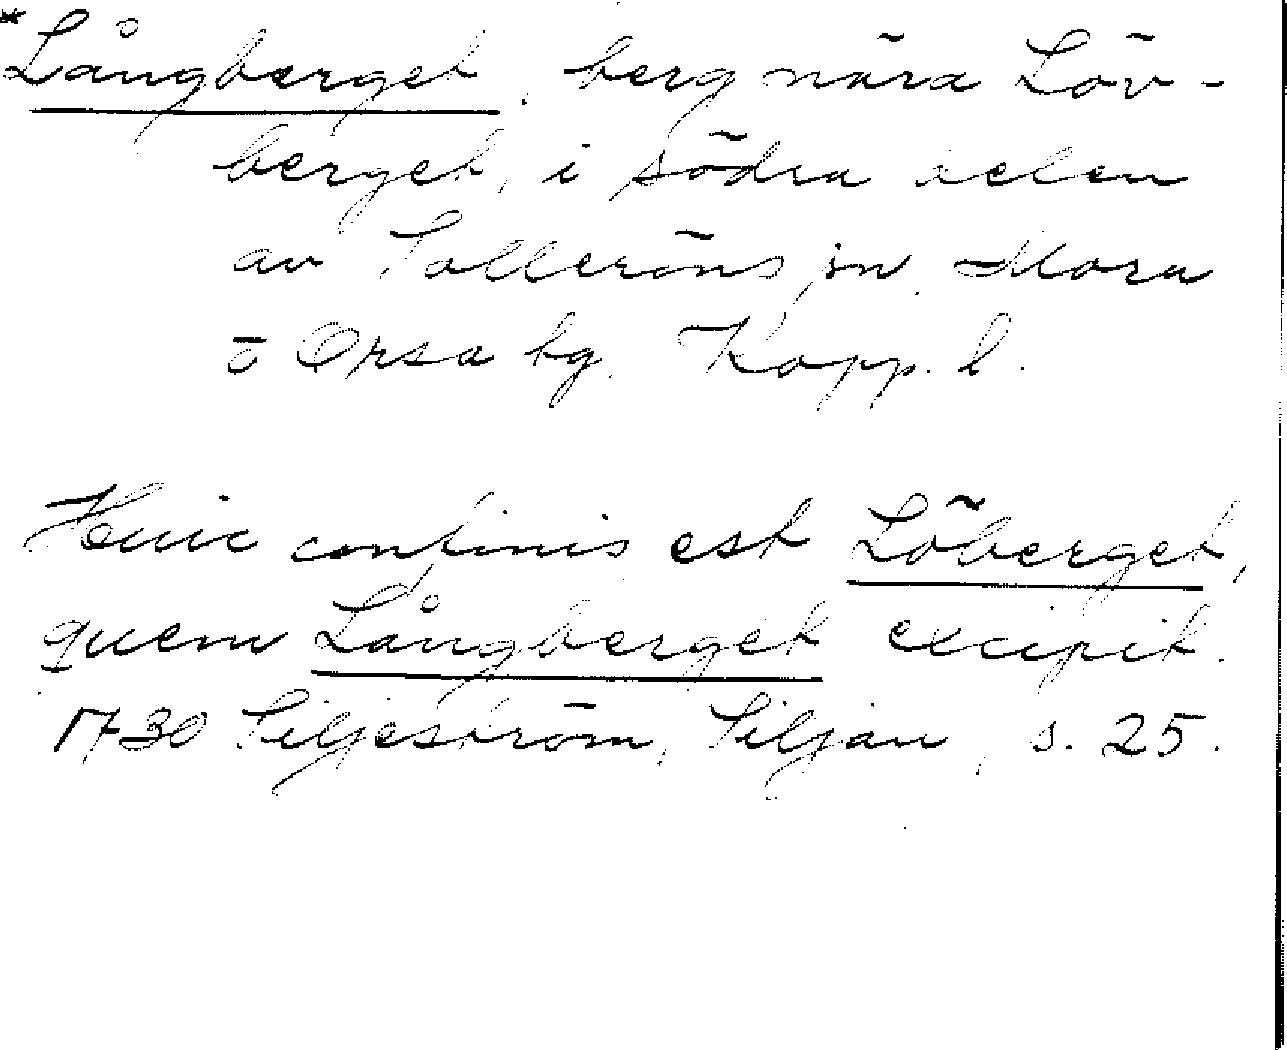 *Långberget, berg nära Löv-
berget, i södra delen
av Solleröns sn, Mora
o Orsa tg. Kopp. l.
Huic confinis est Löberget,
quem Långberget excipit.
1730 Siljeström, Siljan, s. 25.